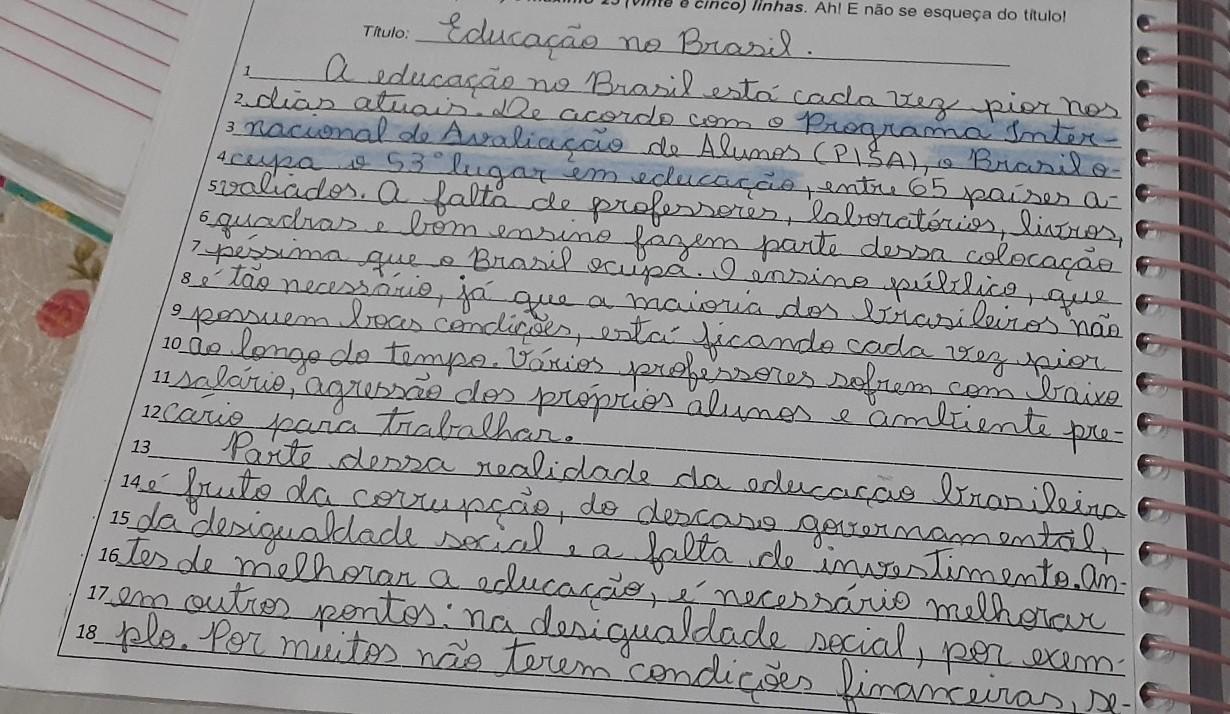 (vinte e cinco) linhas. Ah! E não se esqueça do título!
Título: Educação no Brasil.
1 A educação no Brasil está cada vez pior nos
2 dias atuais. De acordo com o Programa Inter-
3 nacional de Avaliação de Alunos (PISA), o Brasil o-
4 cupa o 53° lugar em educação, entre 65 países a-
5 valiados. A falta de professores, laboratórios, livros,
6 quadras e bom ensino fazem parte dessa colocação
7 péssima que o Brasil ocupa. O ensino público, que
8 é tão necessário, já que a maioria dos brasileiros não
9 possuem boas condições, está ficando cada vez pior
10 ao longo do tempo. Vários professores sofrem com baixo
11 salário, agressão dos próprios alunos e ambiente pre-
12 cário para trabalhar.
13 Parte dessa realidade da educação brasileira
14 é fruto da corrupção, do descaso governamental,
15 da desigualdade social e a falta de investimento. An-
16 tes de melhorar a educação, é necessário melhorar
17 em outros pontos: na desigualdade social, por exem-
18 plo. Por muitos não terem condições financeiras, se-